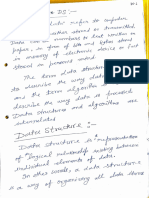 DS :-
data refer to
either stored or transmitted
Data can be numbers or text written on
papers, in form of bits and bytes stored
in memory of electronic device or fact
stored in person's mind
The term data structure
to describe the way data
and the term algorithm
describe the way data is processed
Data structures and algorithms are
interrelated
Data Structure :-
Data structure is representation
of logical relationship existing between
individual elements of data.
In other words, a data structure is
a way of organizing all data items